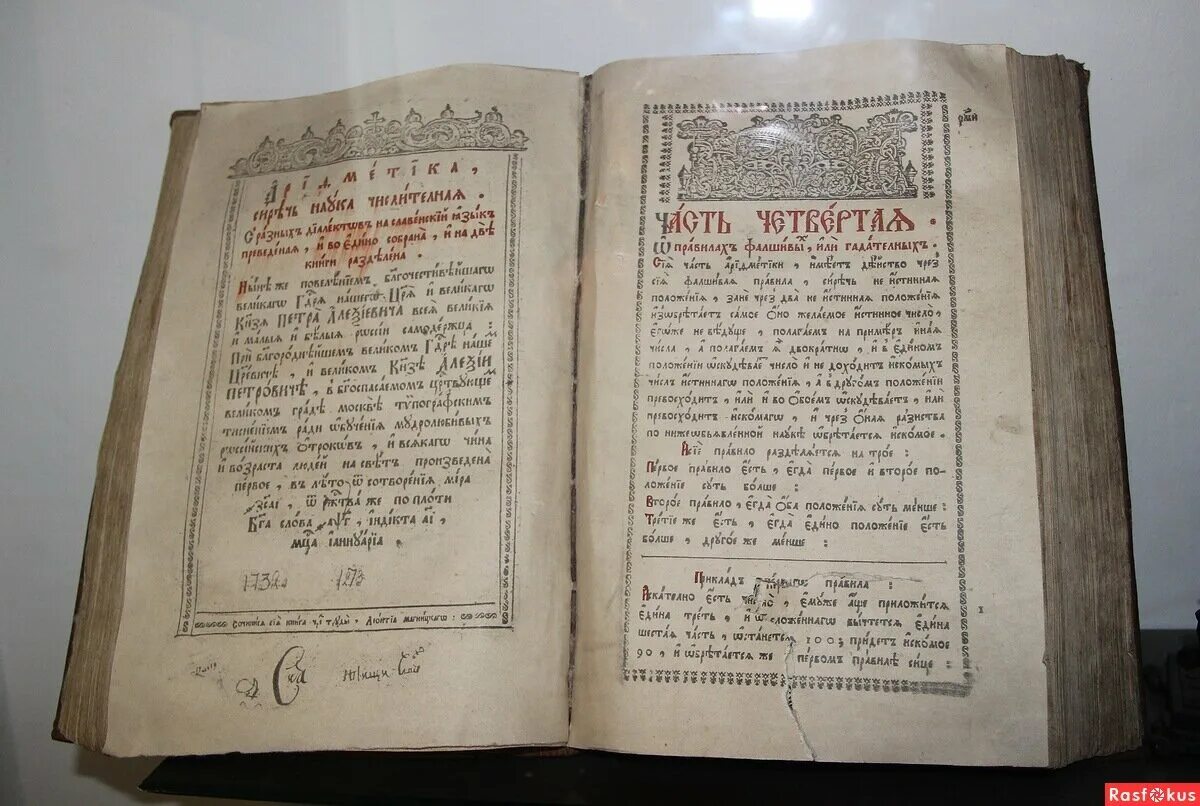 АРІДМЕТІКА,
СИРѢЧЬ НАУКА ЧИСЛИТЕЛНАЯ.
С разныхъ діалектѡвъ на славенскій ꙗзыкъ
преведеная, и во едино собрана, и на двѣ
книги раздѣлена.
Нынѣ же повелѣніемъ благочестивѣйшагѡ
великагѡ Гдⷭ҇рѧ нашегѡ Црѧ и великагѡ
Кнѧзѧ ПЕТРА АЛЕѮІЕВИЧА всеѧ великіѧ
и малыѧ и бѣлыѧ рѡссіи самодержца:
При бл҃городнѣйшемъ великомъ Гдⷭ҇рѣ нашемъ
Цр҃евичѣ, и великомъ Кнѧзѣ АЛЕѮІИ
ПЕТРОВИЧѢ, в бг҃оспасаемомъ црⷭ҇твующемъ
великомъ градѣ москвѣ тѵпографскимъ
тисненіемъ ради ѡбученіѧ мудролюбивыхъ
рѡссійскихъ ѻтрокѡвъ, и всѧкагѡ чина
и возраста людей на свѣтъ произведена
первое, въ лѣто ѿ сотвореніѧ міра
҂зсаі, ѿ ржⷭ҇тва же по плоти
Бг҃а слова ҂аѱг, індікта аі,
мцⷭ҇а іаннуаріа.
1732 1273
Сочинисѧ сіѧ книга чрез труды, Леонтіа магницкагѡ:
рм҃и
ЧАСТЬ ЧЕТВЕРТАЯ.
Ѡ правилахъ фалшивыхъ, или гадателныхъ.
Сіѧ часть арідметіки, имѣетъ дѣйство чрез
сіѧ фалшиваѧ правила, сирѣчь не истиннаѧ
положеніѧ, зане чрез два не истиннаѧ положеніѧ
изѡбрѣтаетъ самое ѻно желаемое истинное число,
егѡже не вѣдуще, полагаемъ на примѣръ инаѧ
числа, а полагаемъ ѧ двократнѡ, и в единомъ
положеніи ѡскудѣваетъ число и не доходитъ искомыхъ
числъ истиннагѡ положеніѧ, а в другомъ положеніи
превосходитъ, или и во ѻбоемъ ѡскудѣваетъ, или
превосходитъ искомагѡ, и чрез ѻнаѧ разнства
по нижеѡбъѧвленной наукѣ ѡбрѣтаетсѧ искомое.
И сіе правило раздѣлѧетсѧ на трое:
Первое правило есть, егда первое и второе по-
ложеніе суть болше:
Второе правило, егда ѻба положеніѧ суть менше:
Третіе же есть, егда едино положеніе есть
болше, другое же менше:
Прикладъ первагѡ правила:
Искателно есть число, емуже аще приложитсѧ
едина треть, и ѿ сложеннагѡ вычтетсѧ едина
шестаѧ часть, ѡстанетсѧ 100; прійдетъ искомое
90, и ѡбрѣтаетсѧ же первомъ правилѣ сице:
Rasfokus